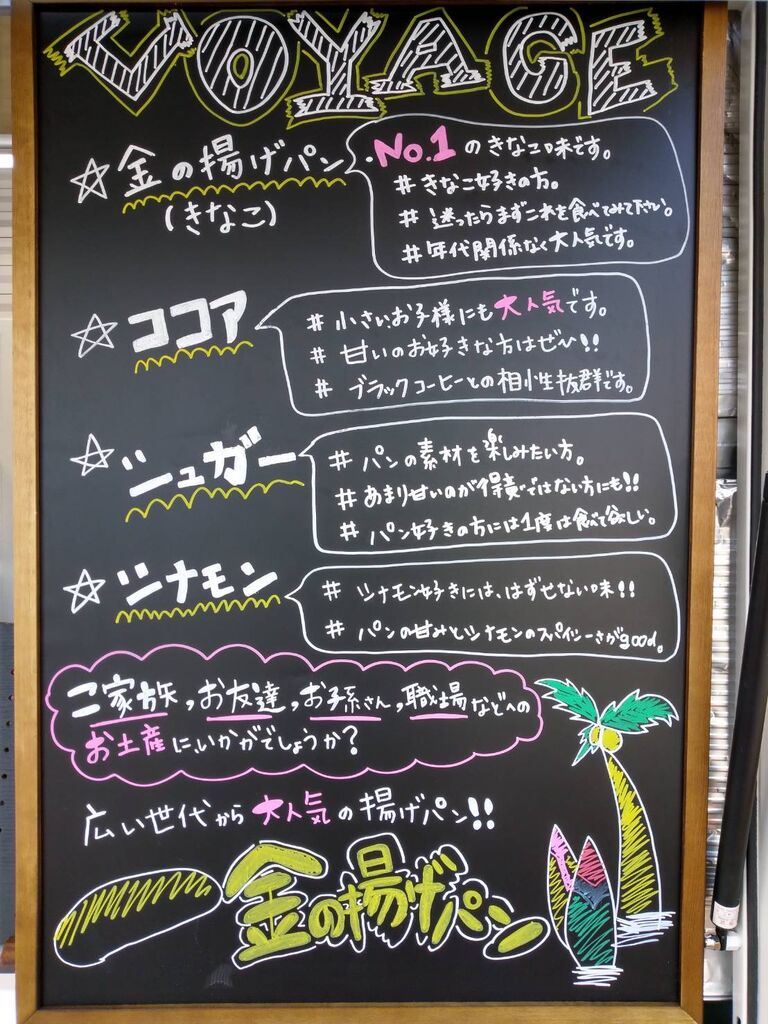 VOYAGE
☆金の揚げパン
(きなこ)
No.1のきなこ味です。
# きなこ好きの方。
# 迷ったらまずこれを食べてみて下さい。
# 年代関係なく大人気です。
☆ココア
# 小さいお子様にも大人気です。
# 甘いのお好きな方はぜひ!!
# ブラックコーヒーとの相性抜群です。
☆シュガー
# パンの素材を楽しみたい方。
# あまり甘いのが得意ではない方にも!!
# パン好きの方には1度は食べて欲しい。
☆シナモン
# シナモン好きには、はずせない味!!
# パンの甘みとシナモンのスパイシーさがgood。
ご家族,お友達,お孫さん,職場などへの
お土産に、いかがでしょうか?
広い世代から大人気の揚げパン!!
金の揚げパン